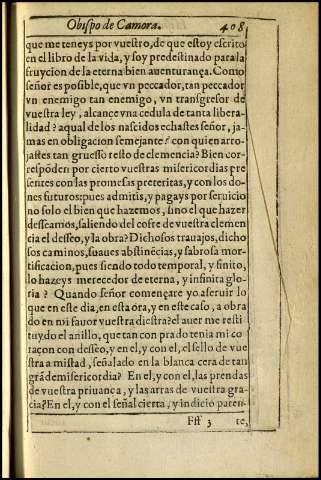 Obispo de Camora. 408
que me teneys por vuestro, de que estoy escrito
en el libro de la vida, y soy predestinado para la
fruycion de la eterna bien auenturança. Como
señor es posible, que vn peccador, tan peccador
vn enemigo tan enemigo, vn transgresor de
vuestra ley, alcance vna cedula de tanta libera-
lidad? a qual de los nascidos echastes señor, ja-
mas en obligacion semejante? con quien arro-
jastes tan gruesso resto de clemencia? Bien cor-
respõden por cierto vuestras misericordias pre
sentes con las promesas preteritas, y con los do-
nes futuros: pues admitis, y pagays por seruicio
no solo el bien que hazemos, sino el que hazer
desseamos, saliendo del cofre de vuestra clemen
cia el desseo, y la obra? Dichosos trauajos, dicho
sos caminos, suaues abstinẽcias, y sabrosa mor-
tificacion, pues siendo todo temporal, y finito,
lo hazeys merecedor de eterna, y infinita glo-
ria? Quando señor començare yo a seruir lo
que en este dia, en esta ora, y en este caso, a obra
do en mi fauor vuestra diestra? el auer me resti
tuydo el anillo, que tan prado tenia mi co
raçon con desseo, y en el, y con el, el sello de vue
stra amistad, señalado en la blanca cera de tan
grãde misericordia? En el, y con el, las prendas
de vuestra priuança, y las arras de vuestra gra-
cia? En el, y con el señal cierta, y indicio paten-
Fff 3 te,